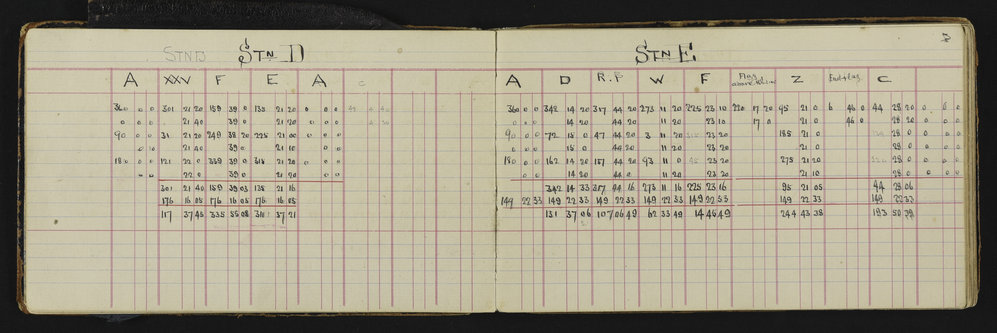 STN D STN D
A XXV F E A C
360 0 0 301 21 20 159 39 0 135 21 20 0 0 0
0 0 21 40 39 0 21 20 0 0 0
90 0 0 31 21 20 249 38 20 225 21 00 0 0 0
0 0 21 40 39 0 21 10 0 0
180 0 0 121 22 0 339 39 0 315 21 20 0 0 0
0 0 22 0 39 0 21 20 0 0
301 21 40 159 39 03 135 21 16
176 16 05 176 16 05 176 16 05
117 37 45 335 55 08 311 37 21
STN E
A D R.P W F Flag Z End flag C
360 0 0 342 14 20 317 44 20 273 11 20 225 23 10 220 17 20 95 21 0 6 46 0 44 28 20 0 0 0
0 0 14 20 44 20 11 20 23 10 17 0 21 0 46 0 28 20 0 0
90 0 0 72 15 0 47 44 20 3 11 20 23 20 185 21 0 28 0 0 0 0
0 0 15 0 44 20 11 20 23 20 21 0 28 0 0 0
180 0 0 162 14 20 137 44 20 93 11 0 45 23 20 275 21 20 28 0 0 0 0
0 0 14 20 44 0 11 20 23 20 21 10 28 0 0 0
342 14 33 317 44 16 273 11 16 225 23 16 95 21 05 44 28 06
149 22 33 149 22 33 149 22 33 149 22 33 149 22 33 149 22 33 149 22 33
131 37 06 107 06 49 62 33 49 14 46 49 244 43 38 193 50 39